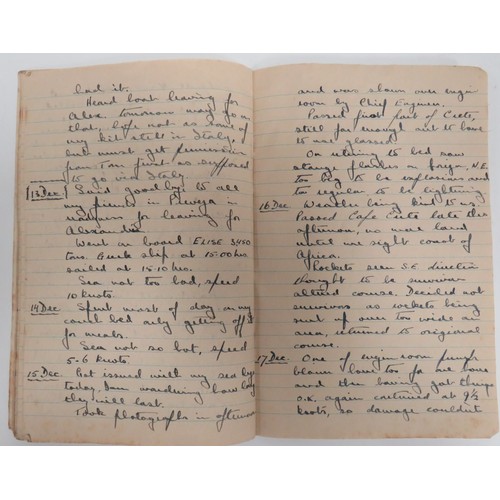 had it.
Heard boat leaving for
Alex. tomorrow may go on
that, hope not as some of
my kit still in Italy,
but must get permission
from first as supposed
to go via Italy.
13 Dec Said goodbye to all
my friends in in
readiness for leaving for
Alexandria.
Went on board ELISE 3450
ton ship at 15.00 hrs
sailed at 15.10 hrs.
Sea not too bad, speed
10 knots.
14 Dec Spent most of day on my
camp bed only getting off it
for meals.
Sea not so hot, speed
5-6 knots.
15 Dec Got issued with my sea legs
today, I am wondering how long
they will last.
Took photographs in afternoon
and was shown over engine
room by Chief Engineer.
Passed first part of Crete,
still far enough out to have
to use glasses.
On return to bed saw
flashes on N.E.
too big to be explosions and
too regular to be lightning
16 Dec Weather being kind to us.
Passed Cape Crete late this
afternoon, no more land
until we sight coast of
Africa.
Rockets seen S.E. direction
thought to be survivors
altered course. Decided not
survivors as rockets being
sent up over too wide an
area, returned to origional
course.
17 Dec One of engine room pumps
blown
and then having got things
O.K. again continued at 9½
knots, so damage couldn't